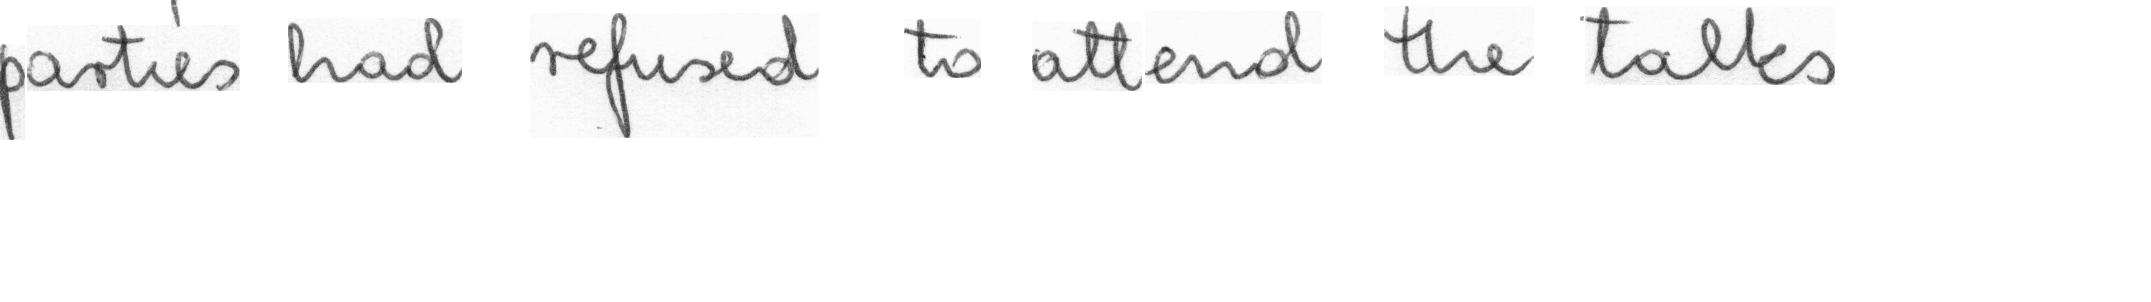 parties had refused to attend the talks